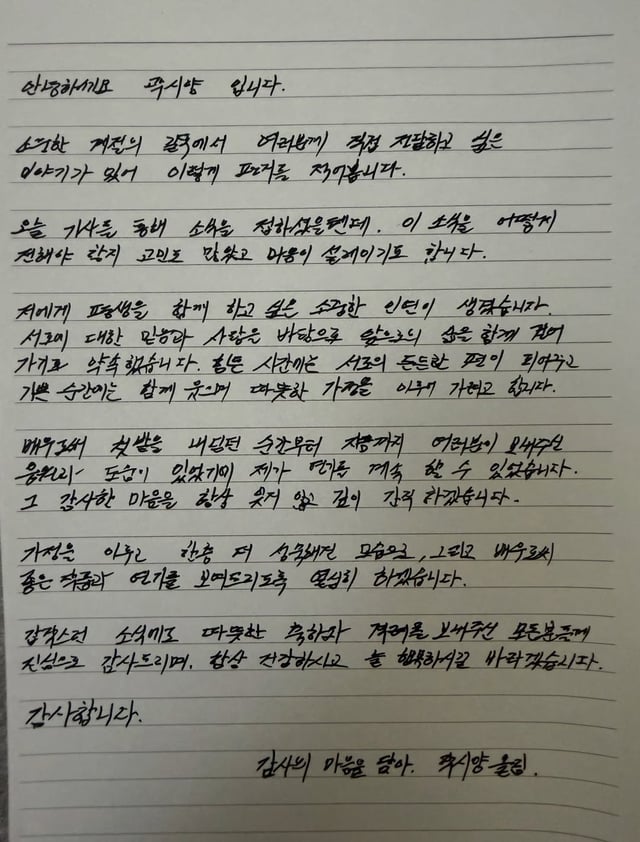 안녕하세요 곽시양 입니다.
소중한 계절의 길목에서 여러분께 직접 전달하고 싶은
이야기가 있어 이렇게 편지를 적어봅니다.
오늘 기사를 통해 소식을 접하셨을텐데, 이 소식을 어떻게
전해야 할지 고민도 많았고 마음이 설레이기도 합니다.
저에게 평생을 함께 하고 싶은 소중한 인연이 생겼습니다.
서로에 대한 믿음과 사랑을 바탕으로 앞으로의 삶을 함께 걸어
가기로 약속했습니다. 힘든 시간에는 서로의 든든한 편이 되어주고
기쁜 순간에는 함께 웃으며 따뜻한 가정을 이루어 가려고 합니다.
배우로써 첫발을 내딛던 순간부터 지금까지 여러분이 보내주신
응원과 도움이 있었기에 제가 연기를 계속 할 수 있었습니다.
그 감사한 마음을 항상 잊지 않고 깊이 간직 하겠습니다.
가정을 이루고 한층 더 성숙해진 모습으로, 그리고 배우로써
좋은 작품과 연기를 보여드리도록 열심히 하겠습니다.
갑작스런 소식에도 따뜻한 축하와 격려를 보내주신 모든분들께
진심으로 감사드리며, 항상 건강하시고 늘 행복하시길 바라겠습니다.
감사합니다.
감사의 마음을 담아. 곽시양 올림.